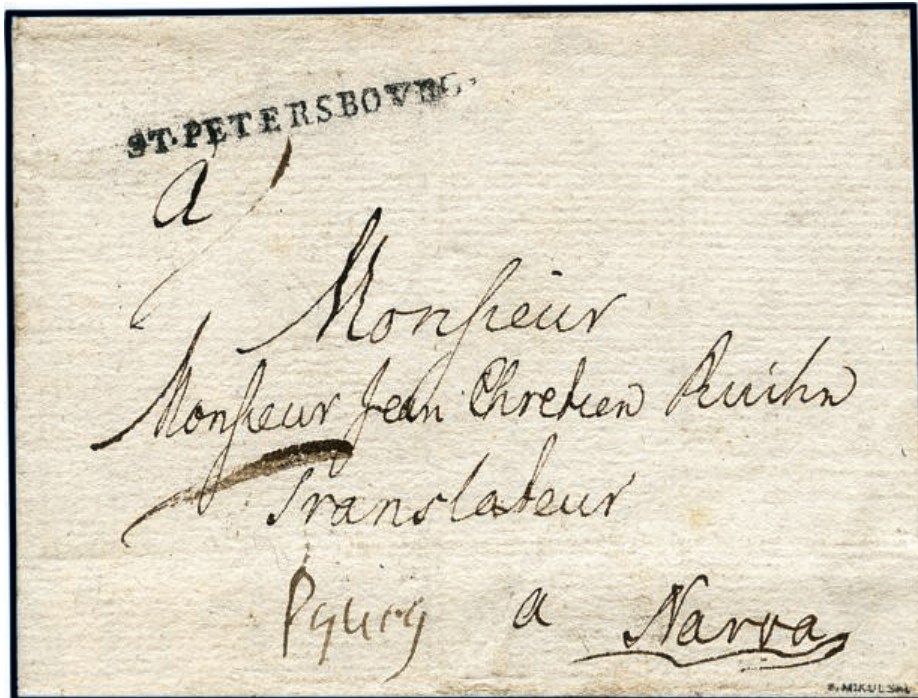 ST.PETERSBOVRG.
a
Monsieur
Monsieur Jean Chretien
Translateur
a Narva
S. MIKULSKI